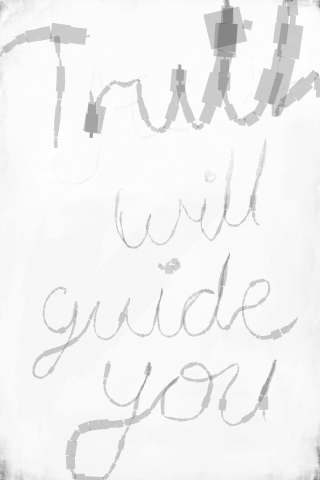 Truth
will
guide
you